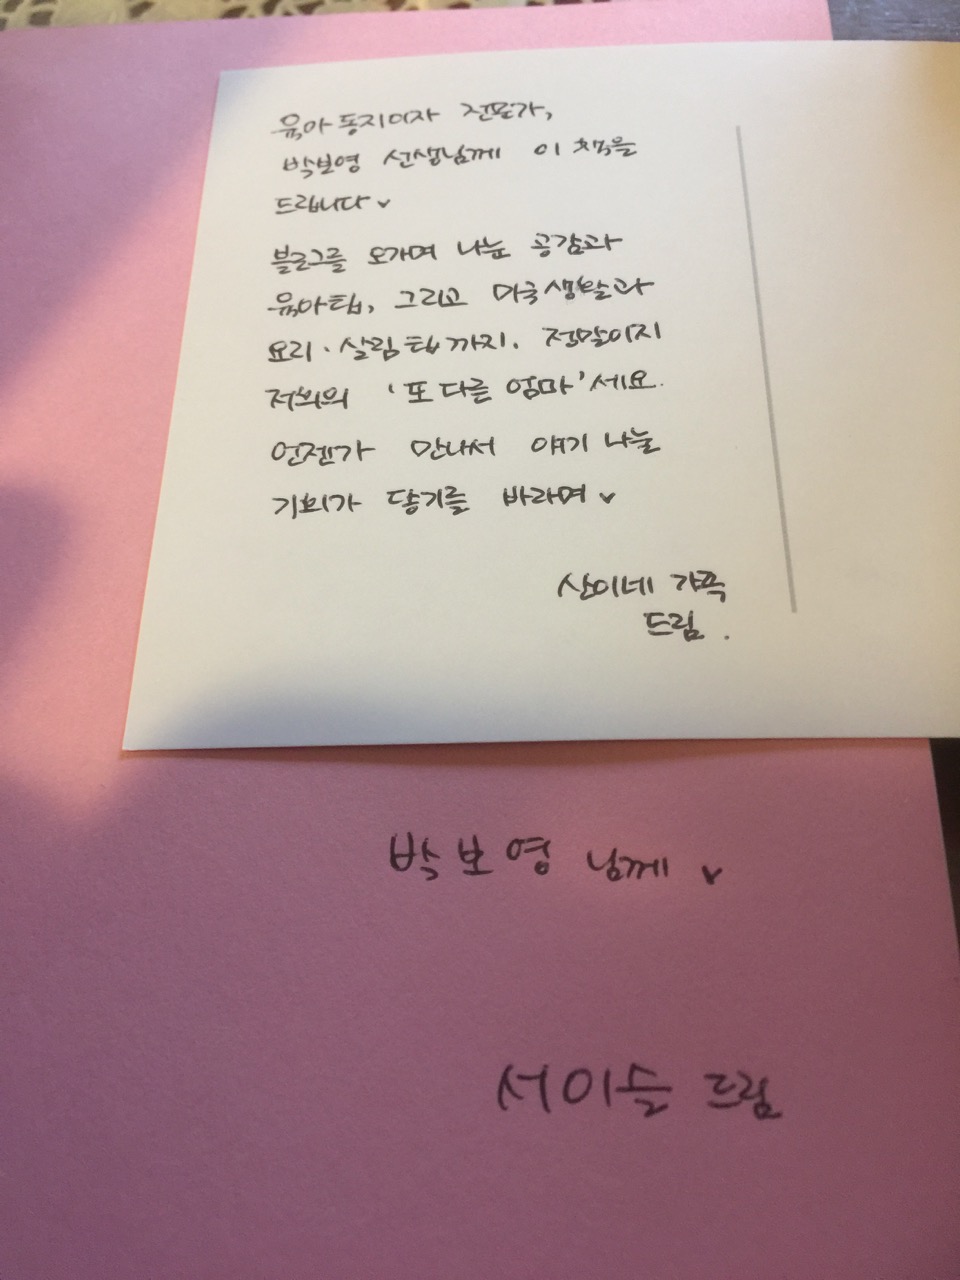 육아동지이자 전문가,
박보영 선생님께 이 책을
드립니다♥
블로그를 오가며 나눈 공감과
육아팁, 그리고 미국생활과
요리·살림팁까지. 정말이지
저희의 '또 다른 엄마'세요.
언젠가 만나서 얘기 나눌
기회가 닿기를 바라며♥
산이네 가족
드림.
박보영 님께♥
서이슬 드림